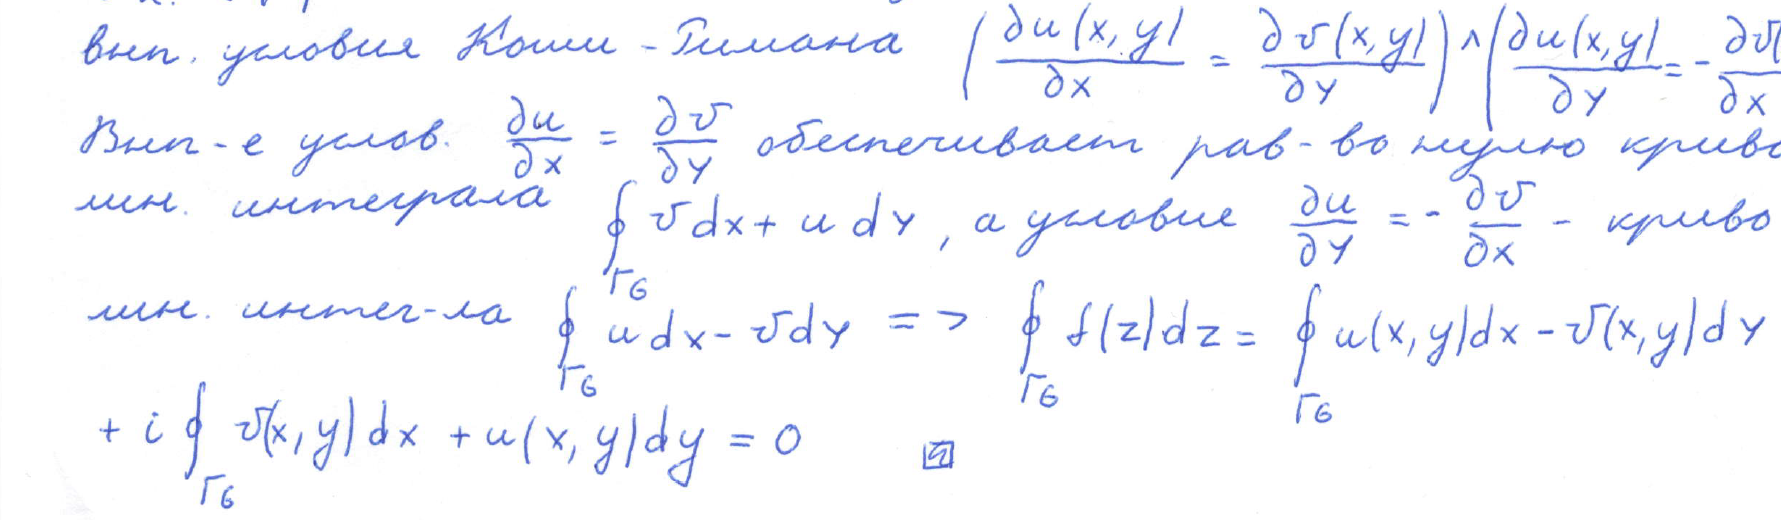 вып. условия Коши - Римана (∂u(x,y)/∂x = ∂v(x,y)/∂y) ∧ (∂u(x,y)/∂y = - ∂v(/∂x
Вып-е услов. ∂u/∂x = ∂v/∂y обеспечивает рав-во нулю криво
лин. интеграла ∮_Γ_G v dx + u dy, а условие ∂u/∂y = - ∂v/∂x - криво
лин. интег-ла ∮_Γ_G u dx - v dy => ∮_Γ_G f(z)dz = ∮_Γ_G u(x,y)dx - v(x,y)dy
+ i ∮_Γ_G v(x,y)dx + u(x,y)dy = 0